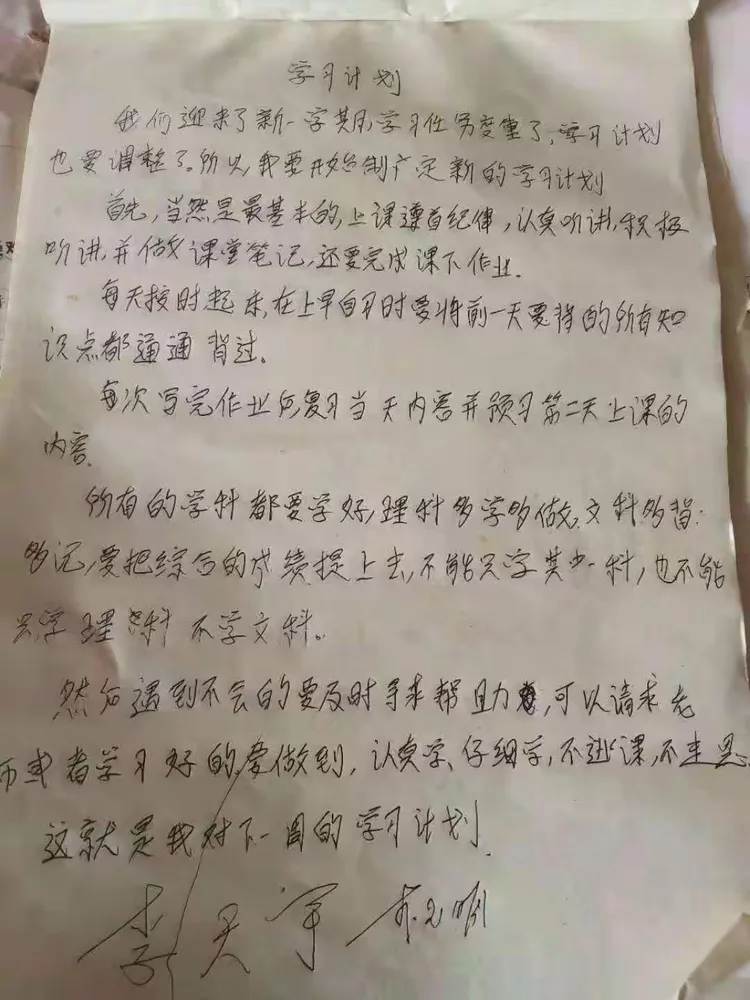 学习计划
我们迎来了新一学期,学习任务变重了,学习计划
也要调整了。所以,我要开始制定新的学习计划
首先,当然是最基本的,上课遵守纪律,认真听讲,积极
听讲,并做课堂笔记,还要完成课下作业.
每天按时起床,在上早自习时要将前一天要背的所有知
识点都通通背过。
每次写完作业后复习当天内容并预习第二天上课的
内容.
所有的学科都要学好,理科多学多做,文科多背:
多记,要把综合的成绩提上去,不能只学其中一科,也不能
只学理科不学文科。
然后遇到不会的要及时寻求帮助,可以请求老
师或者学习好的,要做到,认真学、仔细学,不逃课,不走思.
这就是我对下一周的学习计划.
李天宇